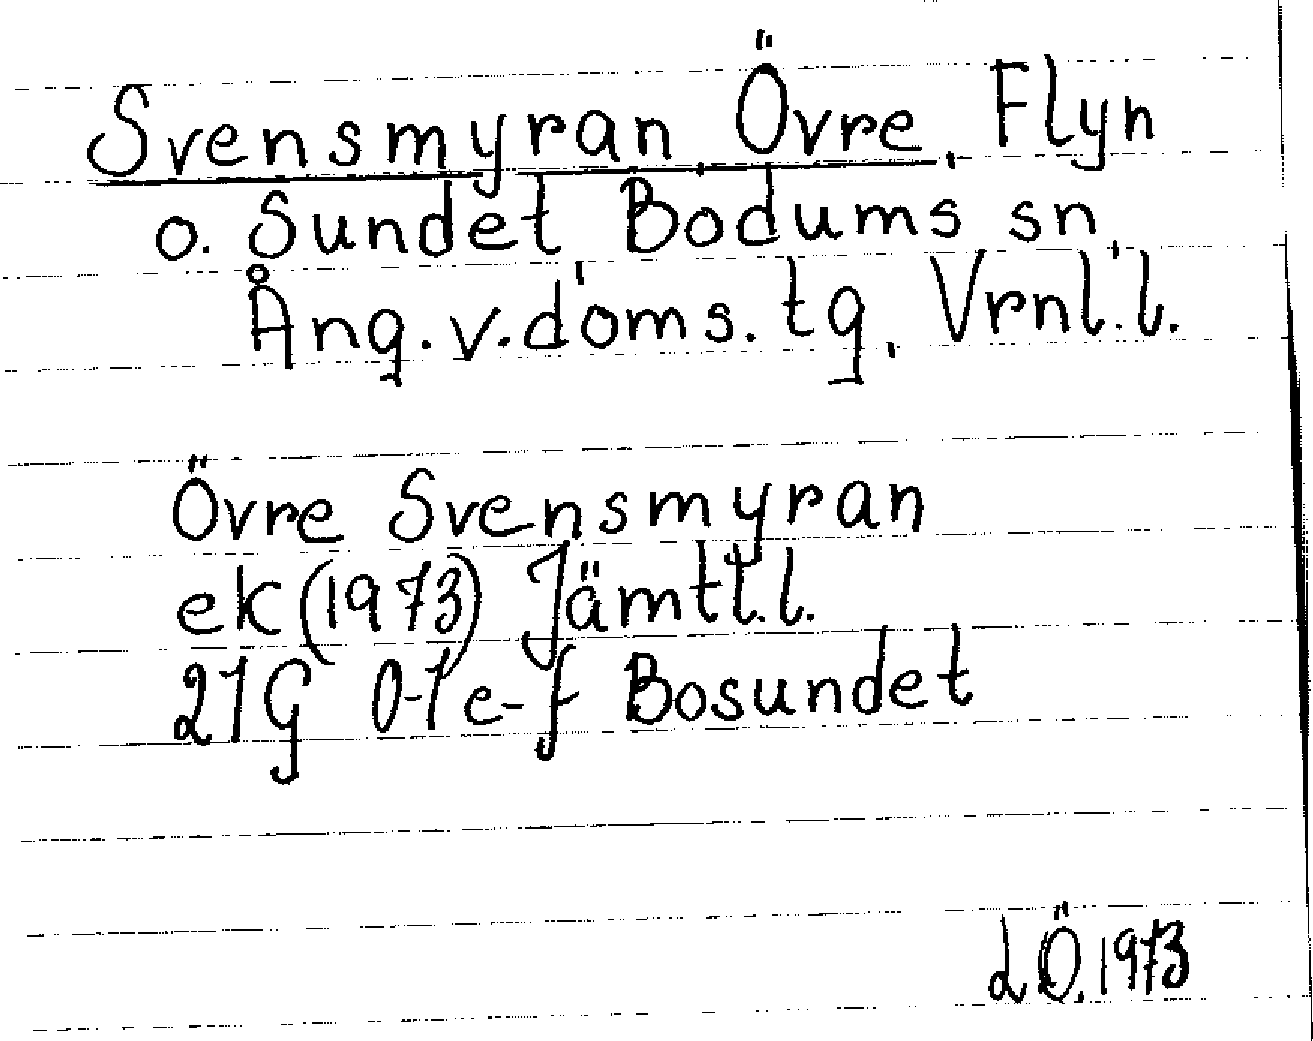 Svensmyran, Övre, Flyn
o. Sundet, Bodums sn,
Ång. v. doms. tg, Vrnl. l.
Övre Svensmyran
ek (1973) Jämtl. l.
21G 0-1 e-f Bosundet
LÖ. 1973